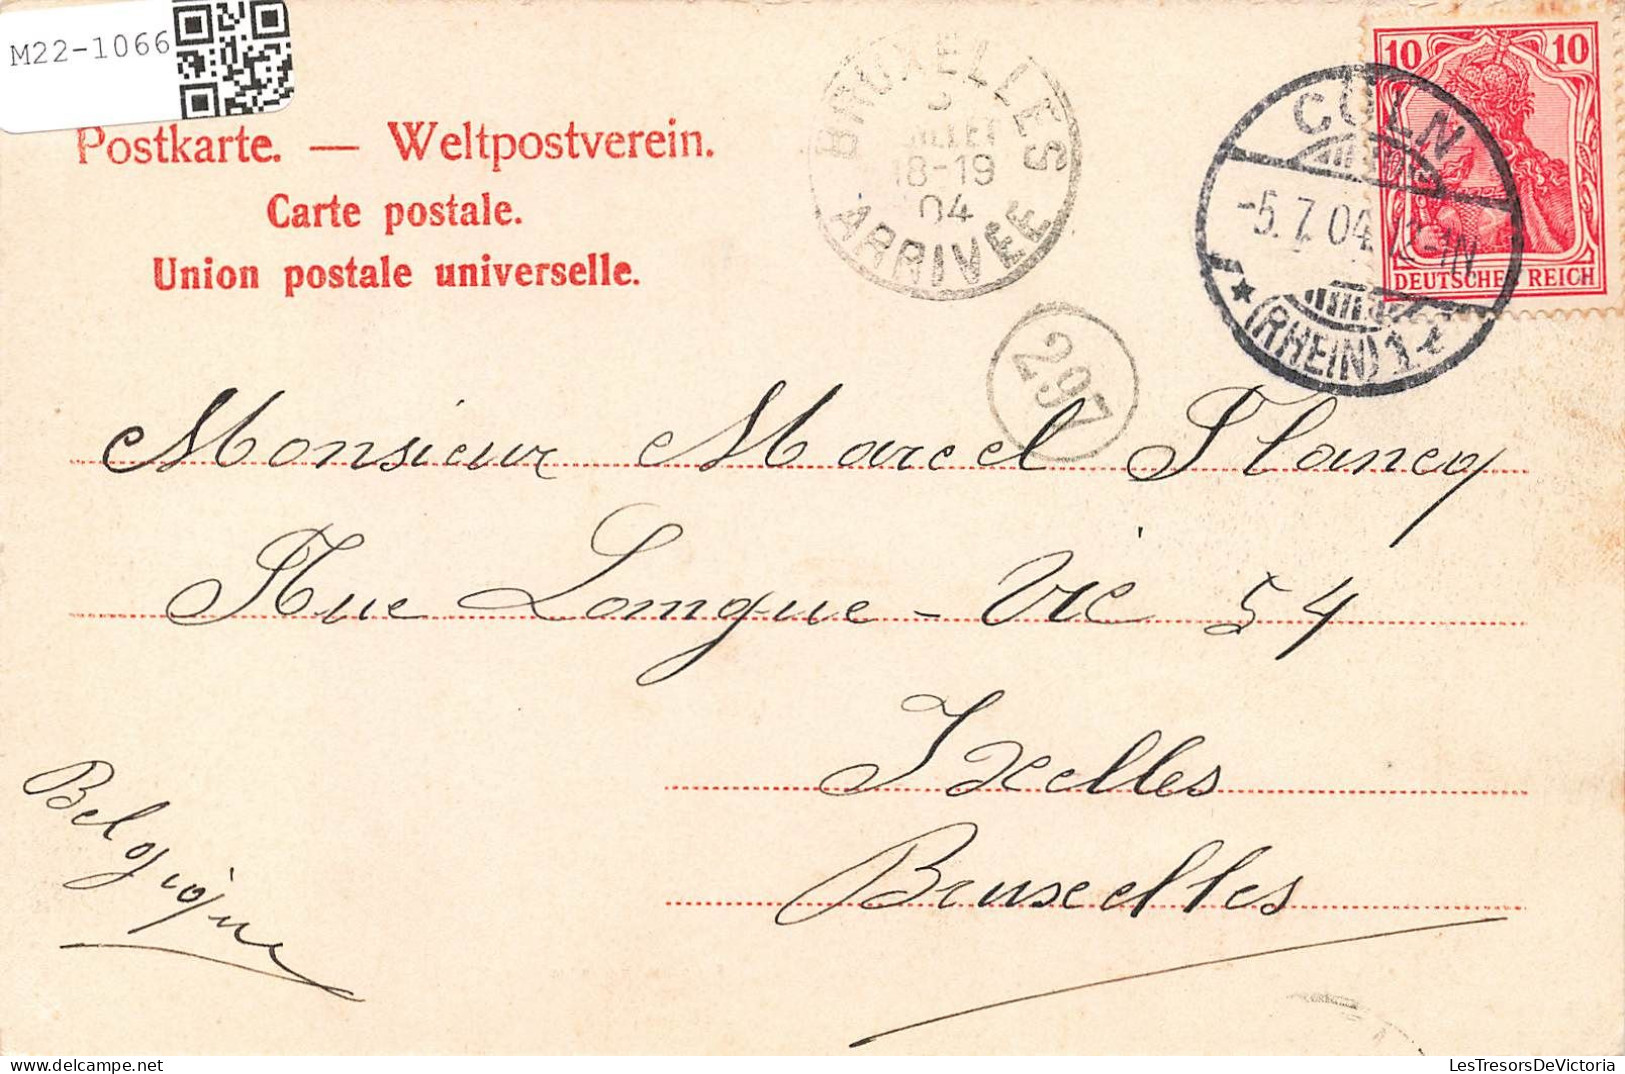 M22-1066
Postkarte. — Weltpostverein.
Carte postale.
Union postale universelle.
BRUXELLES
18-19
04
ARRIVEE
CÖLN
-5.7.04. 12-1N
(RHEIN) 1
10 10
DEUTSCHES REICH
297
Monsieur Marcel Plancq
Rue Longue-Vie 54
Ixelles
Bruxelles
Belgique
LesTresorsDeVictoria